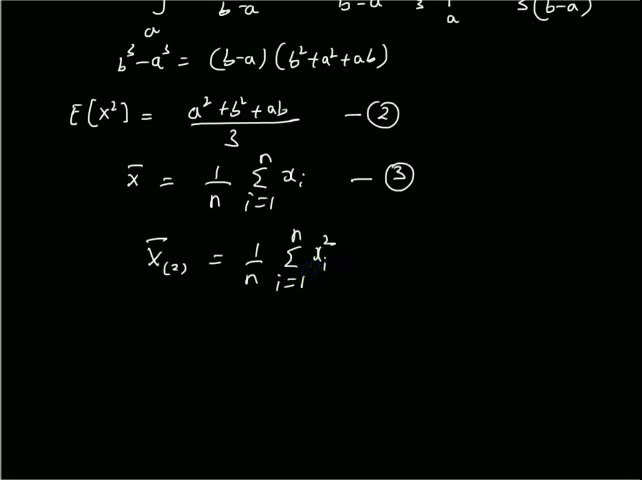 a b-a b-a 3 a 3(b-a)
b³-a³ = (b-a) (b²+a²+ab)
E[X²] = a²+b²+ab / 3 — ②
x̄ = 1/n Σ i=1 n xᵢ — ③
X̄₍₂₎ = 1/n Σ i=1 n xᵢ²